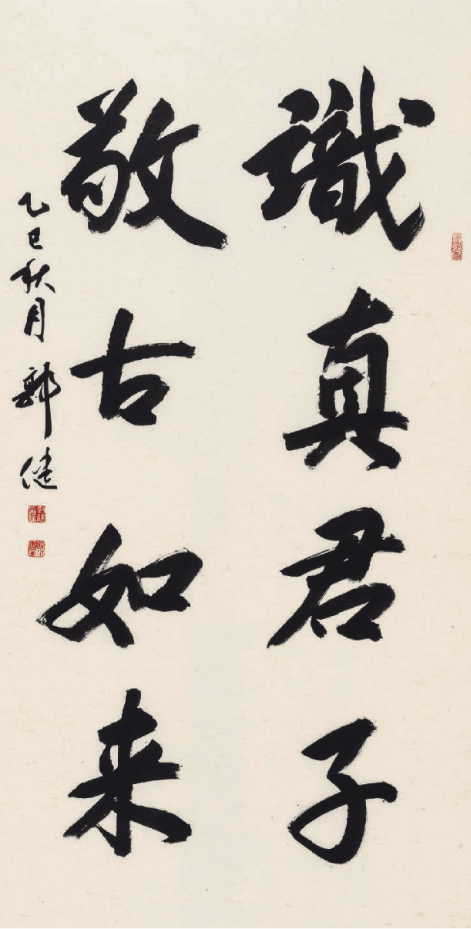 識真君子
敬古如来
乙巳秋月郭健